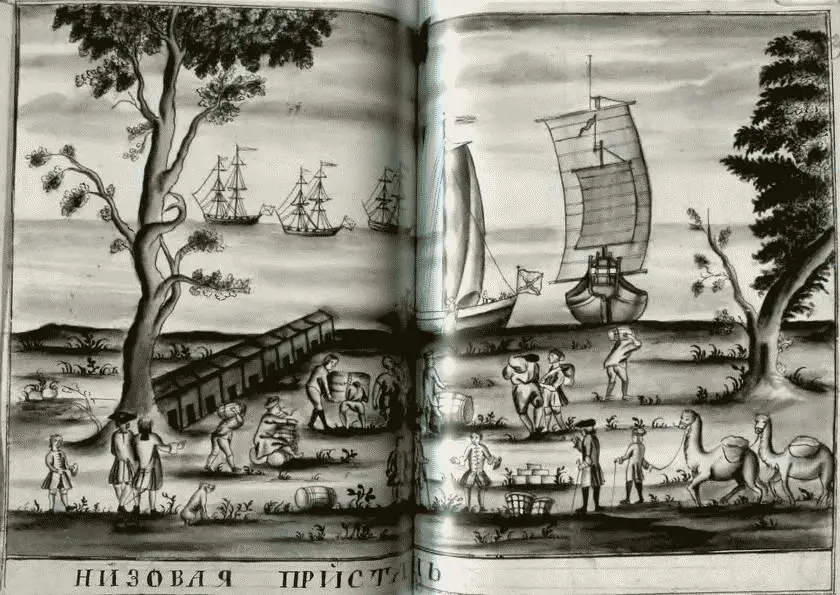 НИЗОВАЯ ПРИСТАНЬ